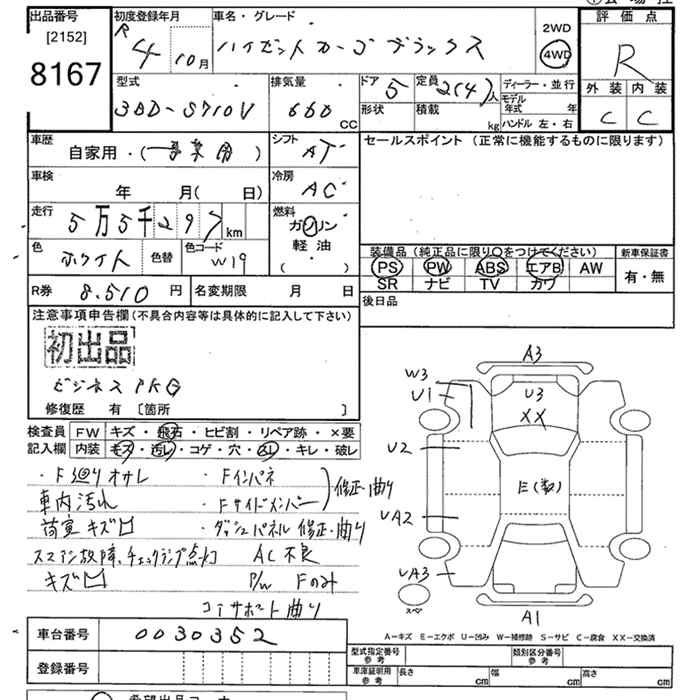 出品番号 初度登録年月 車名・グレード 評価点
[2152] R 4 10月 ハイゼットカーゴ デラックス 2WD
8167 4WD R
型式 排気量 ドア 5 定員 2(4)人 ディーラー・並行 外装 内装
3BD-S710V 660 CC 形状 積載 kg モデル年式 年 C C
ハンドル 左・右
車歴 自家用・(事業用) シフト AT セールスポイント (正常に機能するものに限ります)
車検 年 月( 日) 冷房 AC
走行 5万5千297 km 燃料 ガソリン
軽油
( ・ )
色 ホワイト 色替 色コード W19 装備品 (純正品に限り○をつけてください) 新車保証書
PS PW ABS エアB AW 有・無
SR ナビ TV カワ
R券 8.510 円 名変期限 月 日 後日品
注意事項申告欄(不具合内容等は具体的に記入して下さい)
初出品
ビジネスPKG
修復歴 有 [箇所 ]
検査員 FW キズ・飛石・ヒビ割・リペア跡・×要
記入欄 内装 キズ・汚レ・コゲ・穴・凹・キレ・破レ
・F廻りオサレ ・Fインパネ
車内汚れ ・Fサイドメンバー 修正・曲り
荷室キズ凹 ・ダッシュパネル 修正・曲り
スマアシ故障、チェックランプ点灯 AC不良
キズ凹 P/W Fのみ
コーサポート曲り
A3
W3
U1
U3
XX
U2
E(数)
UA2
UA3
スペ
A1
A-キズ E-エクボ U-凹み W-補修跡 S-サビ C-腐食 XX-交換済
車台番号 0030352 型式指定番号 参考 類別区分番号 参考
登録番号 車庫証明用 参考 長さ cm 幅 cm 高さ cm